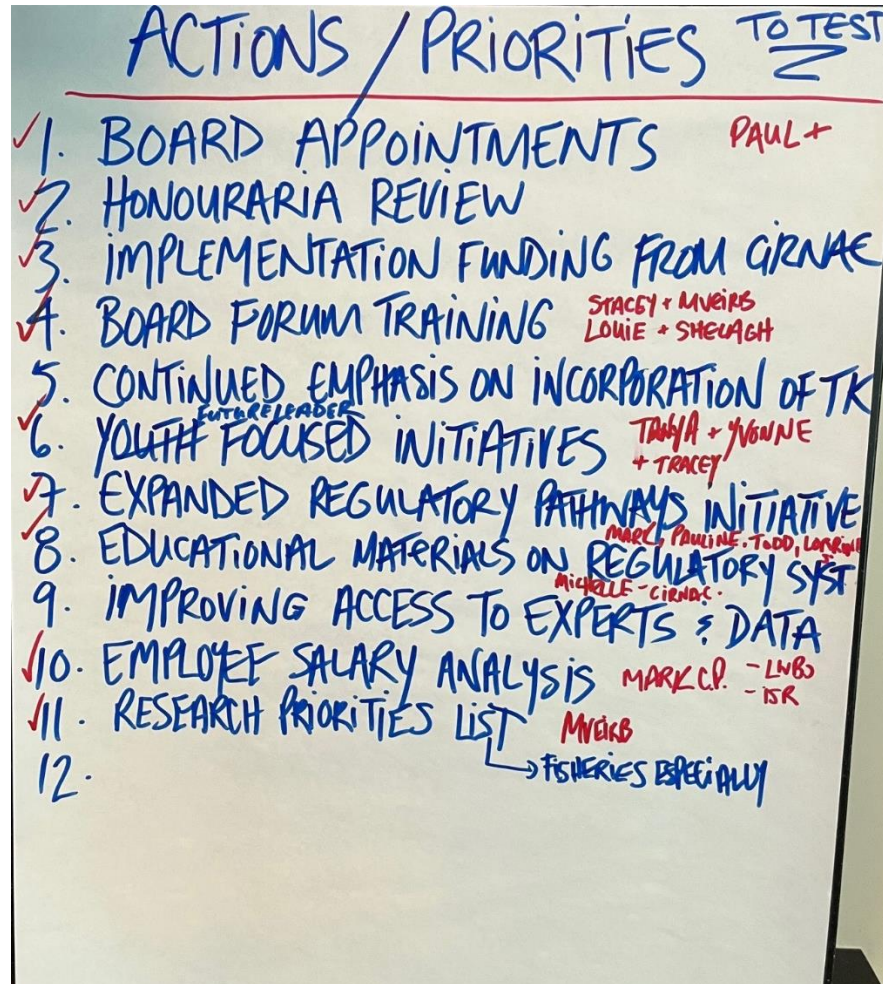 ACTIONS / PRIORITIES TO TEST
✓ 1. BOARD APPOINTMENTS PAUL +
✓ 2. HONOURARIA REVIEW
✓ 3. IMPLEMENTATION FUNDING FROM CIRNAC
✓ 4. BOARD FORUM TRAINING STACEY + MVEIRB
LOUIE + SHELAGH
5. CONTINUED EMPHASIS ON INCORPORATION OF TK
FUTURE LEADER
✓ 6. YOUTH FOCUSED INITIATIVES TANYA + YVONNE
+ TRACEY
✓ 7. EXPANDED REGULATORY PATHWAYS INITIATIVE
MARC, PAULINE, TODD,
✓ 8. EDUCATIONAL MATERIALS ON REGULATORY SYST
MICHELLE - CIRNAC.
9. IMPROVING ACCESS TO EXPERTS & DATA
✓ 10. EMPLOYEE SALARY ANALYSIS MARK C.P. - LWBs
- ISR
✓ 11. RESEARCH PRIORITIES LIST MVEIRB
→ FISHERIES ESPECIALLY
12.